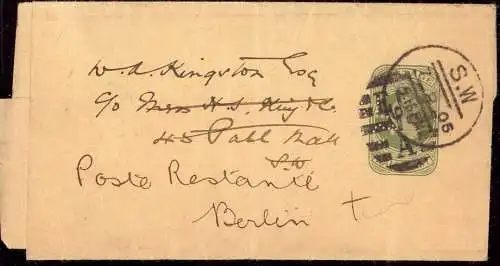 W. A. Kingston Esq
c/o Messrs H. S. King & Co.
45 Pall Mall
S.W
Poste Restante
Berlin
S.W
06
A